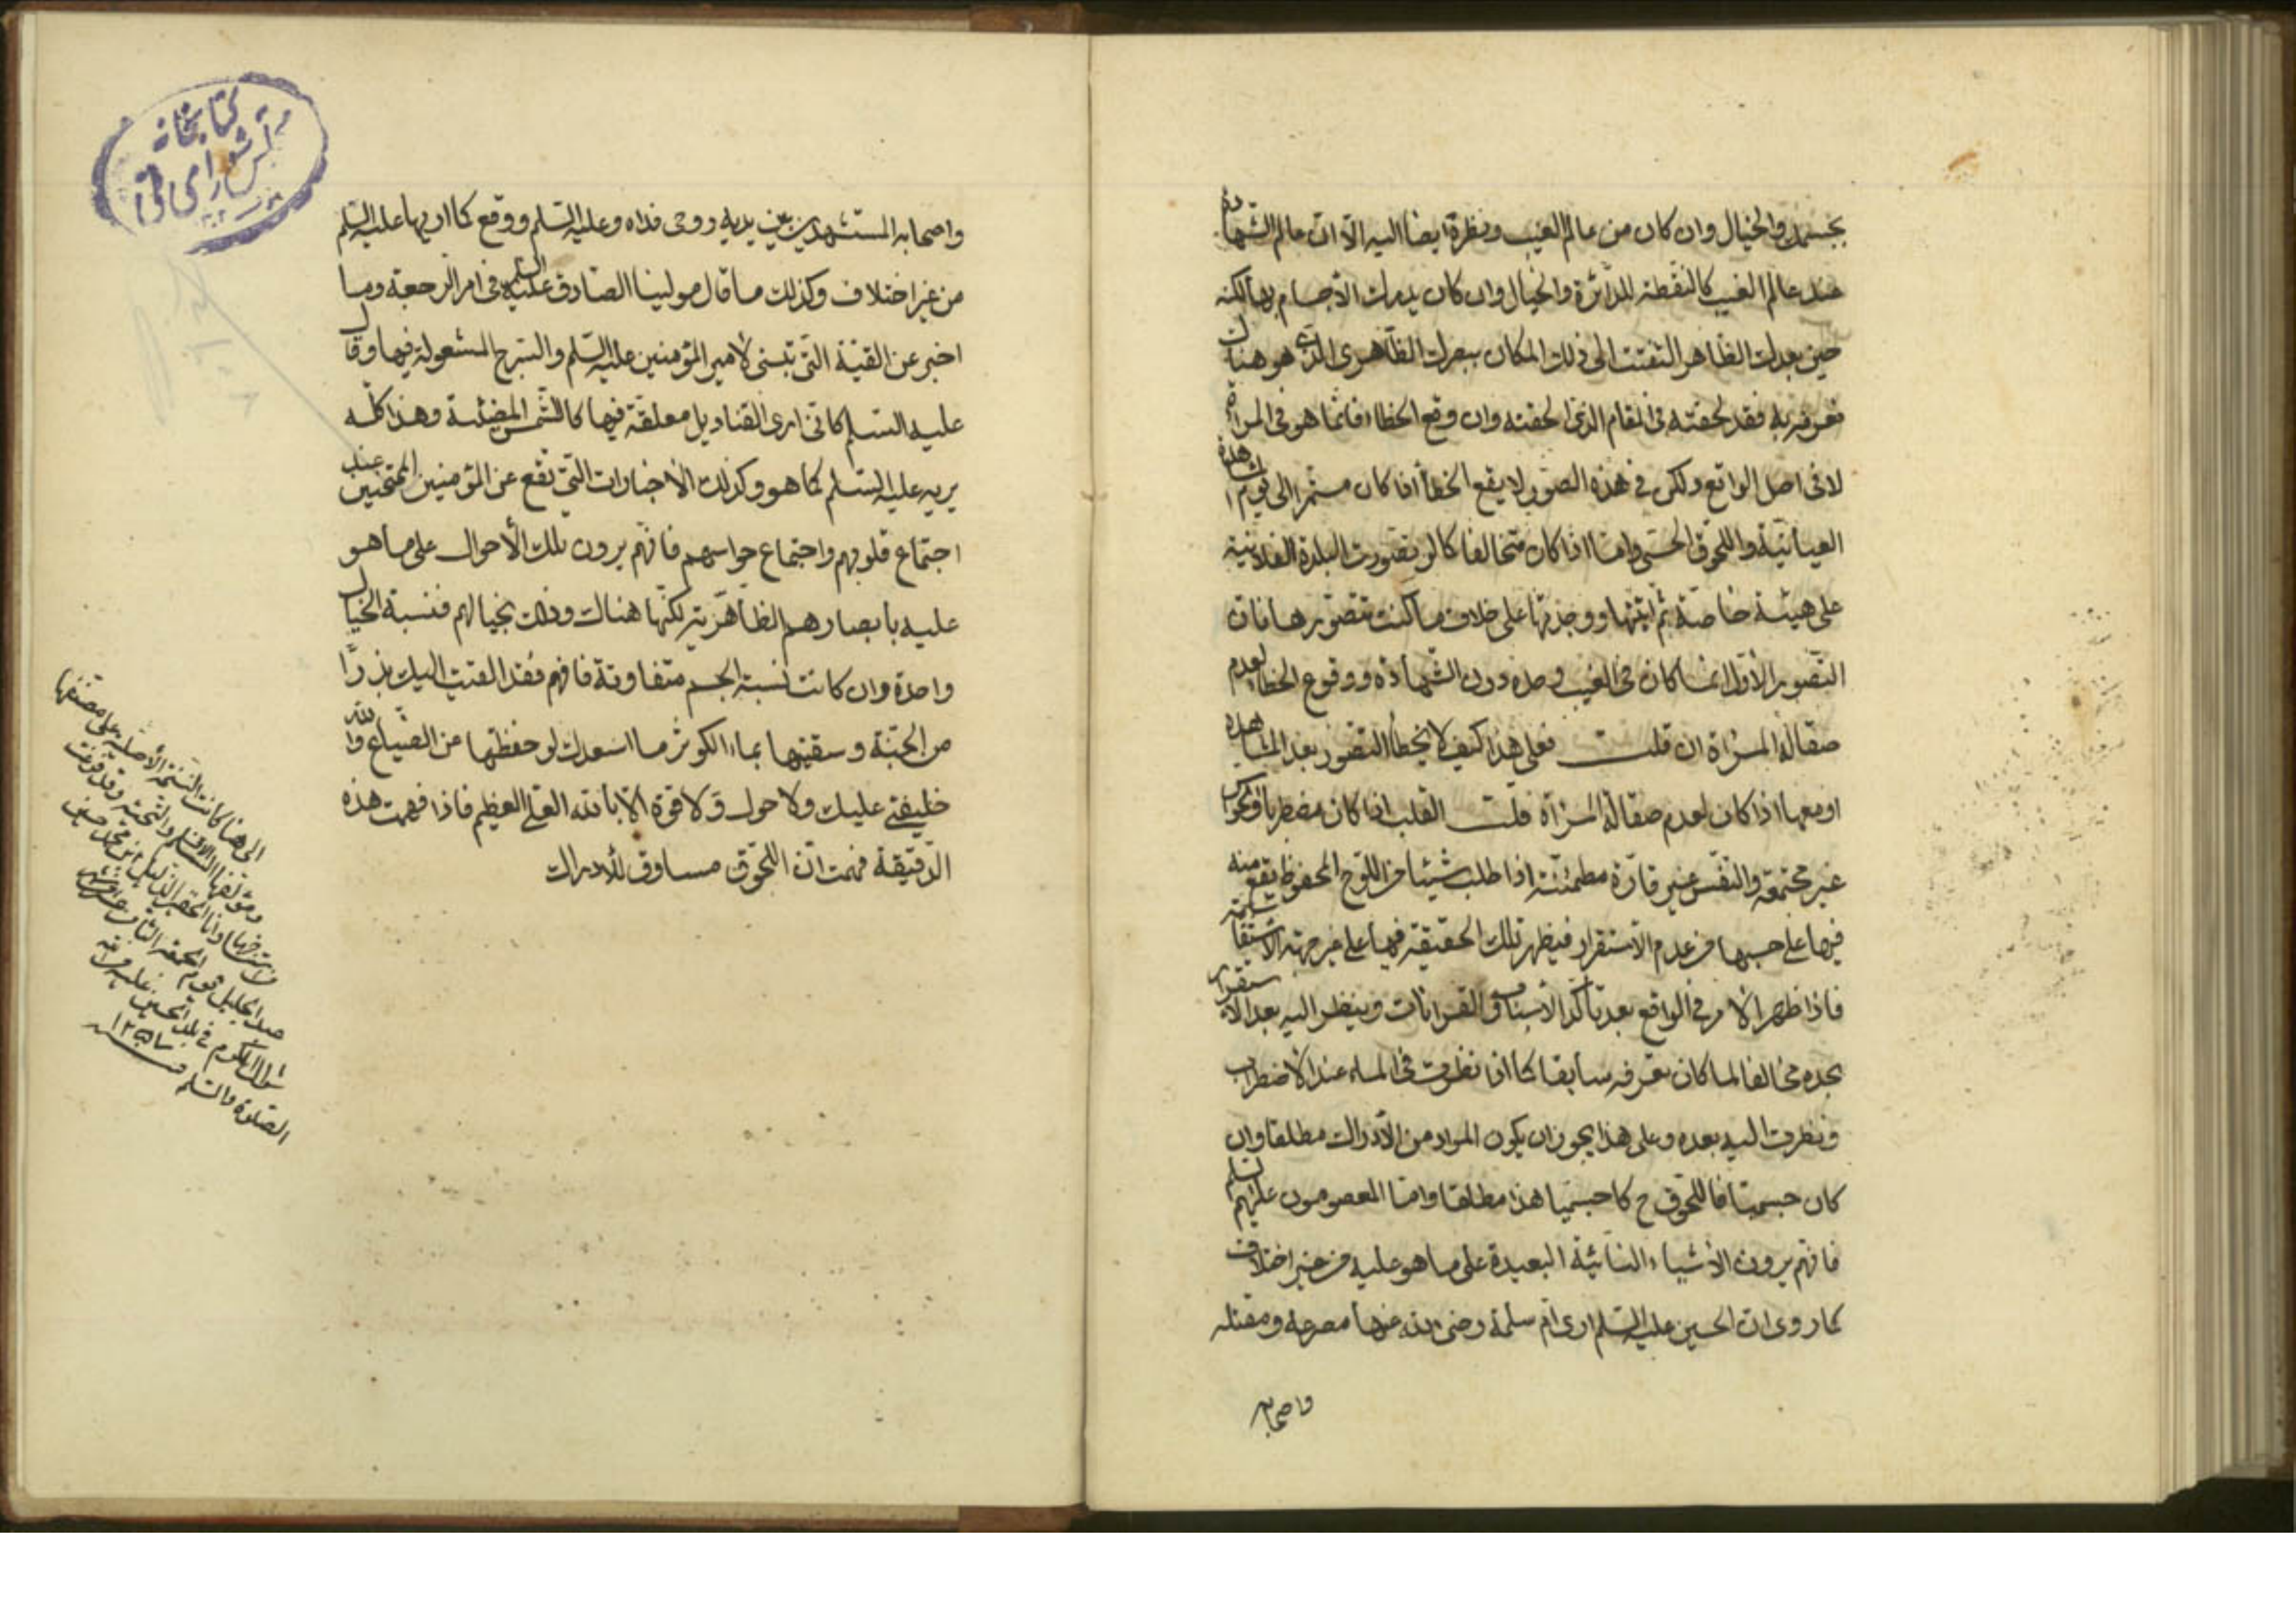 بجسمك والخيال وان كان من عالم الغيب ونظرة ايضا اليه الا ان عالم الشهادة
عند عالم الغيب كالنقطة للدائرة والخيال وان كان يدرك الاجسام بها لكنه
حين بعدك الظاهر التفتت الى ذلك المكان ببصرك الظاهرى الذى هو هناك
تعرفه به فقد لحقته فى المقام الذى لحقته وان وقع الخطاء فانما هو فى المرآة
لا فى اصل الواقع ولكن فى هذه الصور لا يقع الخطأ اذا كان مستمرا الى يوم المشاهدة
العيانية واللحوق الحسى واما اذا كان متخالفا كما لو تصورت البلدة الفلانية
على هيئة خاصة ثم اتيتها ووجدتها على خلاف ما كنت تتصورها فان
التصور الاول انما كان فى الغيب وحده دون الشهادة ووقوع الخطاء لعدم
صقالة المرآة ان قلت فعلى هذا كيف لا يخطأ التصور بعد المشاهدة
او معها اذا كان لعدم صقالة المرآة قلت القلب اذا كان مضطربا والحواس
غير مجتمعة والنفس غير قارة مطمئنة اذا طلب شيئا من اللوح المحفوظ يقع منه
فيها على حسبها من عدم الاستقرار فيظهر تلك الحقيقة فيها على غير جهة الاستقامة
فاذا ظهر الامر فى الواقع بعد تأكد الاسباب والقرانات وينظر اليه بعد الاستقرار
يجده مخالفا لما كان يعرفه سابقا كما اذا نظرت فى الماء عند الاضطراب
ونظرت اليه بعده وعلى هذا يجوز ان يكون المراد من الادراك مطلقا وان
كان جسميا فاللحوق ح كا جسميا هذا مطلقا واما المعصومون عليهم السلم
فانهم يرون الاشياء النائية البعيدة على ما هو عليه من غير اختلاف
كما روى ان الحسين عليه السلم ارى ام سلمة رضى الله عنها مصرعه ومقتله
واصحابه
كتابخانه
مجلس شوراى ملى
واصحابه المستشهدين بين يديه روحى فداه وعليه السلم ووقع كما اريها عليه السلم
من غير اختلاف وكذلك ما قال مولينا الصادق عليه السلم فى امر الرجعة وما
اخبر عن القبة التى تبنى لامير المؤمنين عليه السلم والسرج المشعولة فيها وقال
عليه السلم كانى ارى القناديل معلقة فيها كالشمس المضيئة وهذا كله
يريه عليه السلم كما هو وكذلك الاخبارات التى تقع عن المؤمنين الممتحنين عند
اجتماع قلوبهم واجتماع حواسهم فانهم يرون تلك الاحوال على ما هو
عليه بابصارهم الظاهرية لكنها هناك وذلك بخيالهم فنسبة الخيال
واحدة وان كانت نسبة الجسم متفاوتة فافهم فقد القيت اليك بذرا
من الحبة وسقيتها بماء الكوثر ما اسعدك لو حفظتها عن الضياع والله
خليفتى عليك ولا حول ولا قوة الا بالله العلى العظيم فاذا فهمت هذه
الدقيقة فهمت ان اللحوق مساوق للادراك
الى هنا كانت النسخة الاصلية على مصنفها
ومؤلفها الاف السلم والتحية وقد فرغت
من استنساخها وانا الحقير الذليل ابن محمد حسين
عبد الجليل يوم الجمعة الثانى عشر من شهر
شوال المكرم فى بلد الحسين عليه من الله
الصلوة والسلم سنة ١٢٥١